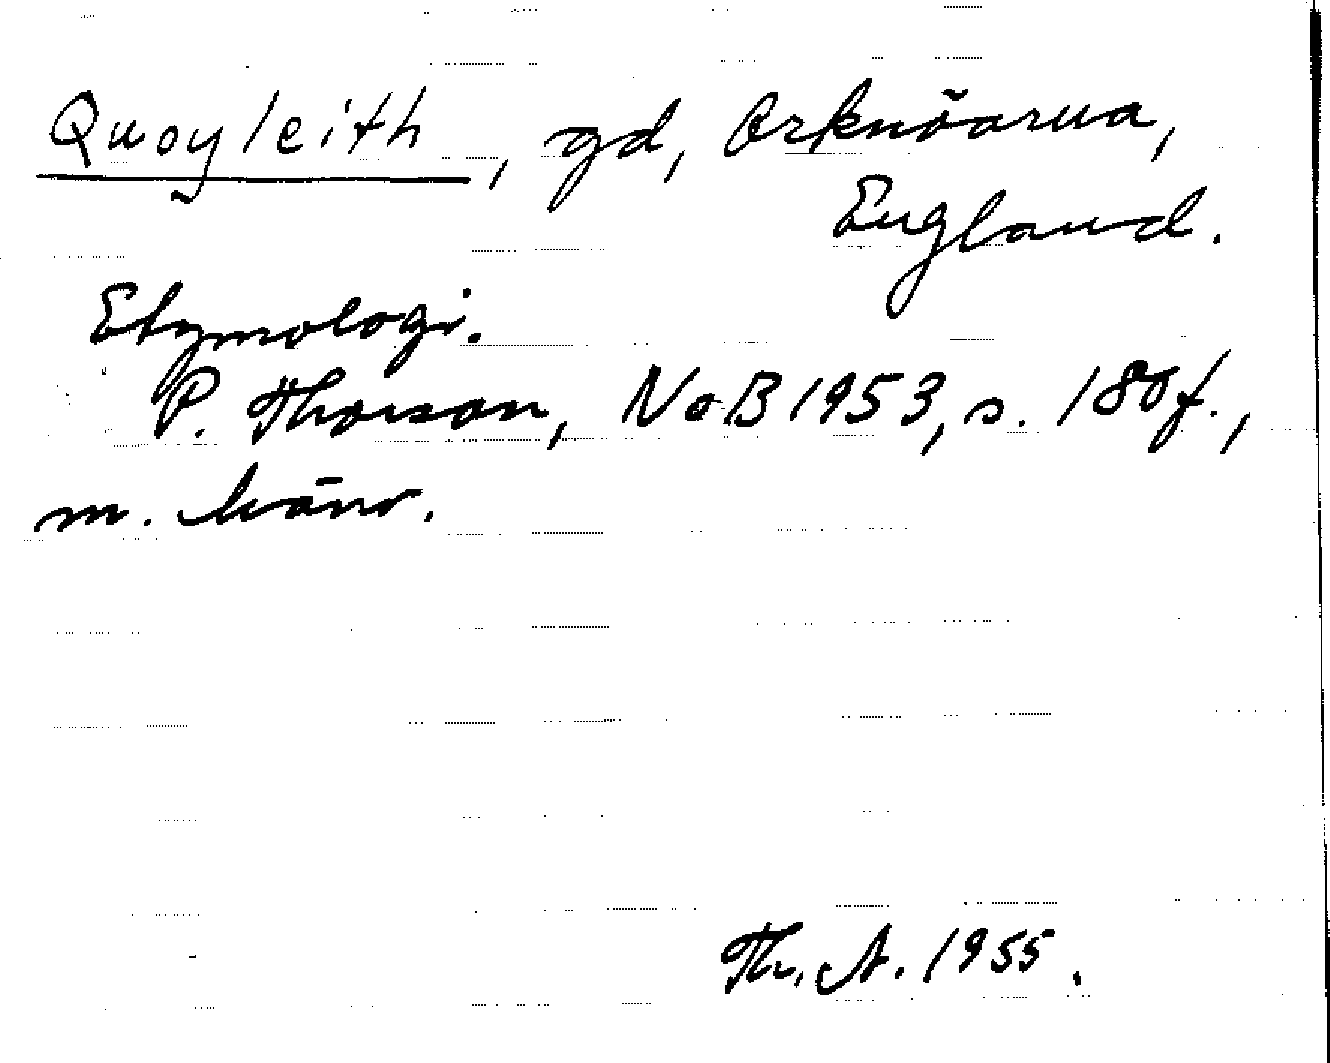 Quoyleith, gd, Orknöarna,
England.
Etymologi.
P. Thorson, NoB 1953, s. 180f.,
m. hänv.
Th. A. 1955.